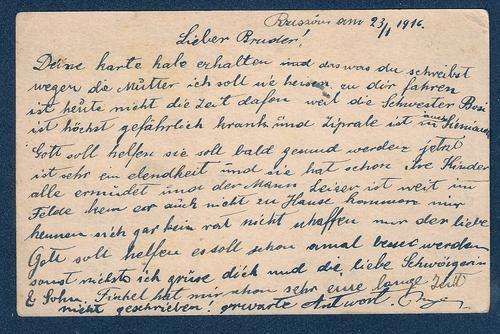 am 23/1 1916.
Lieber Bruder!
Deine karte habe erhalten und das was du schreibst
wegen die Mutter ich soll sie heissen zu dir fahren
ist heute nicht die Zeit dafon weil die Schwester Rosi
ist höchst gefährlich krank und ist in
Gott soll helfen sie soll bald gesund werden jetzt
ist sehr ein elendkeit und sie hat schon ihre Kinder
alle ermüdet und der Mann Leiser ist weit im
Felde kem er auch nicht zu Hause kommen mir
kennen sich gar kein rat nicht schaffen nur der liebe
Gott soll helfen es soll schon amal besser werden
sonst nichts ich grüse dich und die liebe Schwägerin
& Sohn. hat mir schon sehr eine lange Zeit
nicht geschrieben! erwarte Antwort.